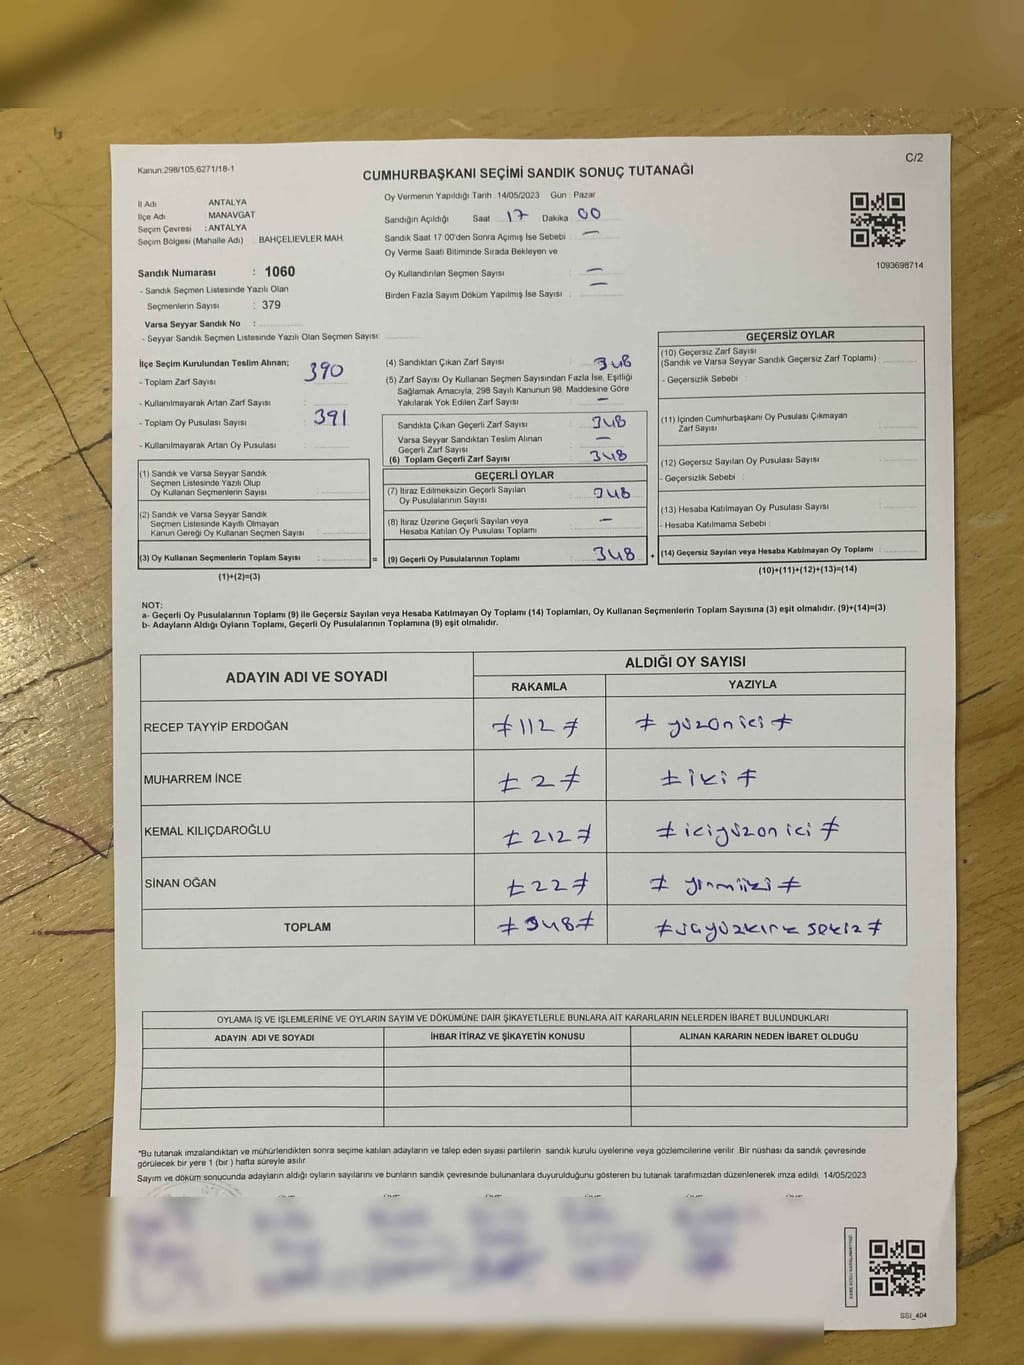 C/2
Kanun:298/105,6271/18-1
CUMHURBAŞKANI SEÇİMİ SANDIK SONUÇ TUTANAĞI
İl Adı ANTALYA
İlçe Adı MANAVGAT
Seçim Çevresi : ANTALYA
Seçim Bölgesi (Mahalle Adı) : BAHÇELİEVLER MAH.
Sandık Numarası : 1060
- Sandık Seçmen Listesinde Yazılı Olan
Seçmenlerin Sayısı : 379
Varsa Seyyar Sandık No :
- Seyyar Sandık Seçmen Listesinde Yazılı Olan Seçmen Sayısı:
Oy Vermenin Yapıldığı Tarih :14/05/2023 Gün : Pazar
Sandığın Açıldığı Saat 17 Dakika 00
Sandık Saat 17:00'den Sonra Açımış İse Sebebi : —
Oy Verme Saati Bitiminde Sırada Bekleyen ve
Oy Kullandırılan Seçmen Sayısı : —
Birden Fazla Sayım Döküm Yapılmış İse Sayısı : —
1093698714
İlçe Seçim Kurulundan Teslim Alınan;
- Toplam Zarf Sayısı : 390
- Kullanılmayarak Artan Zarf Sayısı :
- Toplam Oy Pusulası Sayısı : 391
- Kullanılmayarak Artan Oy Pusulası :
(1) Sandık ve Varsa Seyyar Sandık
Seçmen Listesinde Yazılı Olup
Oy Kullanan Seçmenlerin Sayısı :
(2) Sandık ve Varsa Seyyar Sandık
Seçmen Listesinde Kayıtlı Olmayan
Kanun Gereği Oy Kullanan Seçmen Sayısı :
(3) Oy Kullanan Seçmenlerin Toplam Sayısı : =
(1)+(2)=(3)
(4) Sandıktan Çıkan Zarf Sayısı : 348
(5) Zarf Sayısı Oy Kullanan Seçmen Sayısından Fazla İse, Eşitliği
Sağlamak Amacıyla, 298 Sayılı Kanunun 98. Maddesine Göre
Yakılarak Yok Edilen Zarf Sayısı : —
Sandıkta Çıkan Geçerli Zarf Sayısı : 348
Varsa Seyyar Sandıktan Teslim Alınan
Geçerli Zarf Sayısı : —
(6) Toplam Geçerli Zarf Sayısı : 348
GEÇERLİ OYLAR
(7) İtiraz Edilmeksizin Geçerli Sayılan
Oy Pusulalarının Sayısı : 348
(8) İtiraz Üzerine Geçerli Sayılan veya
Hesaba Katılan Oy Pusulası Toplamı : —
(9) Geçerli Oy Pusulalarının Toplamı : 348 +
GEÇERSİZ OYLAR
(10) Geçersiz Zarf Sayısı
(Sandık ve Varsa Seyyar Sandık Geçersiz Zarf Toplamı) :
- Geçersizlik Sebebi :
(11) İçinden Cumhurbaşkanı Oy Pusulası Çıkmayan
Zarf Sayısı :
(12) Geçersiz Sayılan Oy Pusulası Sayısı :
- Geçersizlik Sebebi :
(13) Hesaba Katılmayan Oy Pusulası Sayısı :
- Hesaba Katılmama Sebebi :
(14) Geçersiz Sayılan veya Hesaba Katılmayan Oy Toplamı :
(10)+(11)+(12)+(13)=(14)
NOT:
a- Geçerli Oy Pusulalarının Toplamı (9) ile Geçersiz Sayılan veya Hesaba Katılmayan Oy Toplamı (14) Toplamları, Oy Kullanan Seçmenlerin Toplam Sayısına (3) eşit olmalıdır. (9)+(14)=(3)
b- Adayların Aldığı Oyların Toplamı, Geçerli Oy Pusulalarının Toplamına (9) eşit olmalıdır.
ADAYIN ADI VE SOYADI ALDIĞI OY SAYISI
RAKAMLA YAZIYLA
RECEP TAYYİP ERDOĞAN ≠ 112 ≠ ≠ yüzonici ≠
MUHARREM İNCE ≠ 2 ≠ ≠ iki ≠
KEMAL KILIÇDAROĞLU ≠ 212 ≠ ≠ iciyüzonici ≠
SİNAN OĞAN ≠ 22 ≠ ≠ yirmiiki ≠
TOPLAM ≠ 348 ≠
OYLAMA İŞ VE İŞLEMLERİNE VE OYLARIN SAYIM VE DÖKÜMÜNE DAİR ŞİKAYETLERLE BUNLARA AİT KARARLARIN NELERDEN İBARET BULUNDUKLARI
ADAYIN ADI VE SOYADI İHBAR İTİRAZ VE ŞİKAYETİN KONUSU ALINAN KARARIN NEDEN İBARET OLDUĞU
*Bu tutanak imzalandıktan ve mühürlendikten sonra seçime katılan adayların ve talep eden siyasi partilerin sandık kurulu üyelerine veya gözlemcilerine verilir. Bir nüshası da sandık çevresinde
görülecek bir yere 1 (bir ) hafta süreyle asılır.
Sayım ve döküm sonucunda adayların aldığı oyların sayılarını ve bunların sandık çevresinde bulunanlara duyurulduğunu gösteren bu tutanak tarafımızdan düzenlenerek imza edildi. 14/05/2023
SSI_404